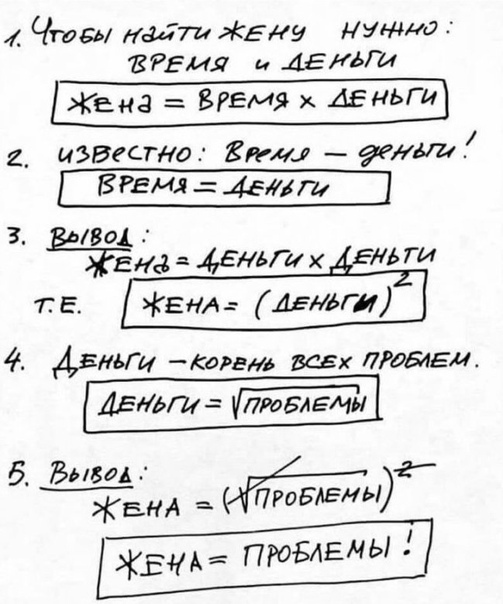 1. Чтобы найти жену нужно:
время и деньги
жена = время х деньги
2. известно: Время – деньги!
время = деньги
3. Вывод:
жена = деньги х деньги
т.е. жена = (деньги)²
4. Деньги – корень всех проблем.
деньги = √проблемы
5. Вывод:
жена = (√проблемы)²
жена = проблемы!